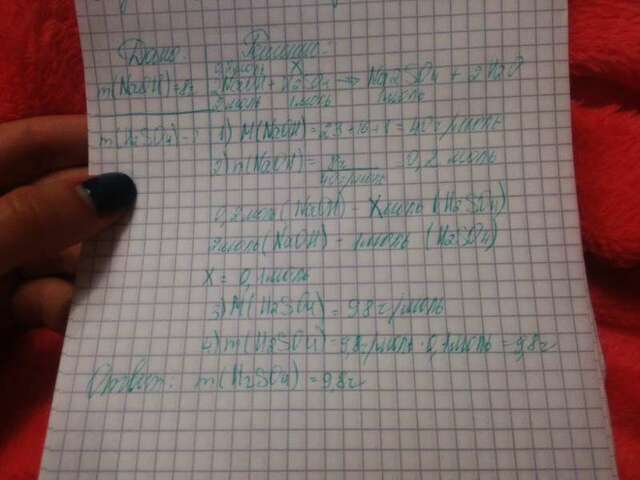 Дано: Решение:
0,2моль X
m(NaOH)=8г 2NaOH + H2SO4 → Na2SO4 + 2H2O
2моль 1моль 1моль
m(H2SO4)-? 1) M(NaOH)=23+16+1=40г/моль
2) n(NaOH)= 8г 0,2 моль
40г/моль
0,2моль(NaOH) - Xмоль (H2SO4)
2моль(NaOH) - 1моль (H2SO4)
X = 0,1моль
3) M(H2SO4) = 98г/моль
4) m(H2SO4)=98г/моль·0,1моль=9,8г
Ответ: m(H2SO4)=9,8г